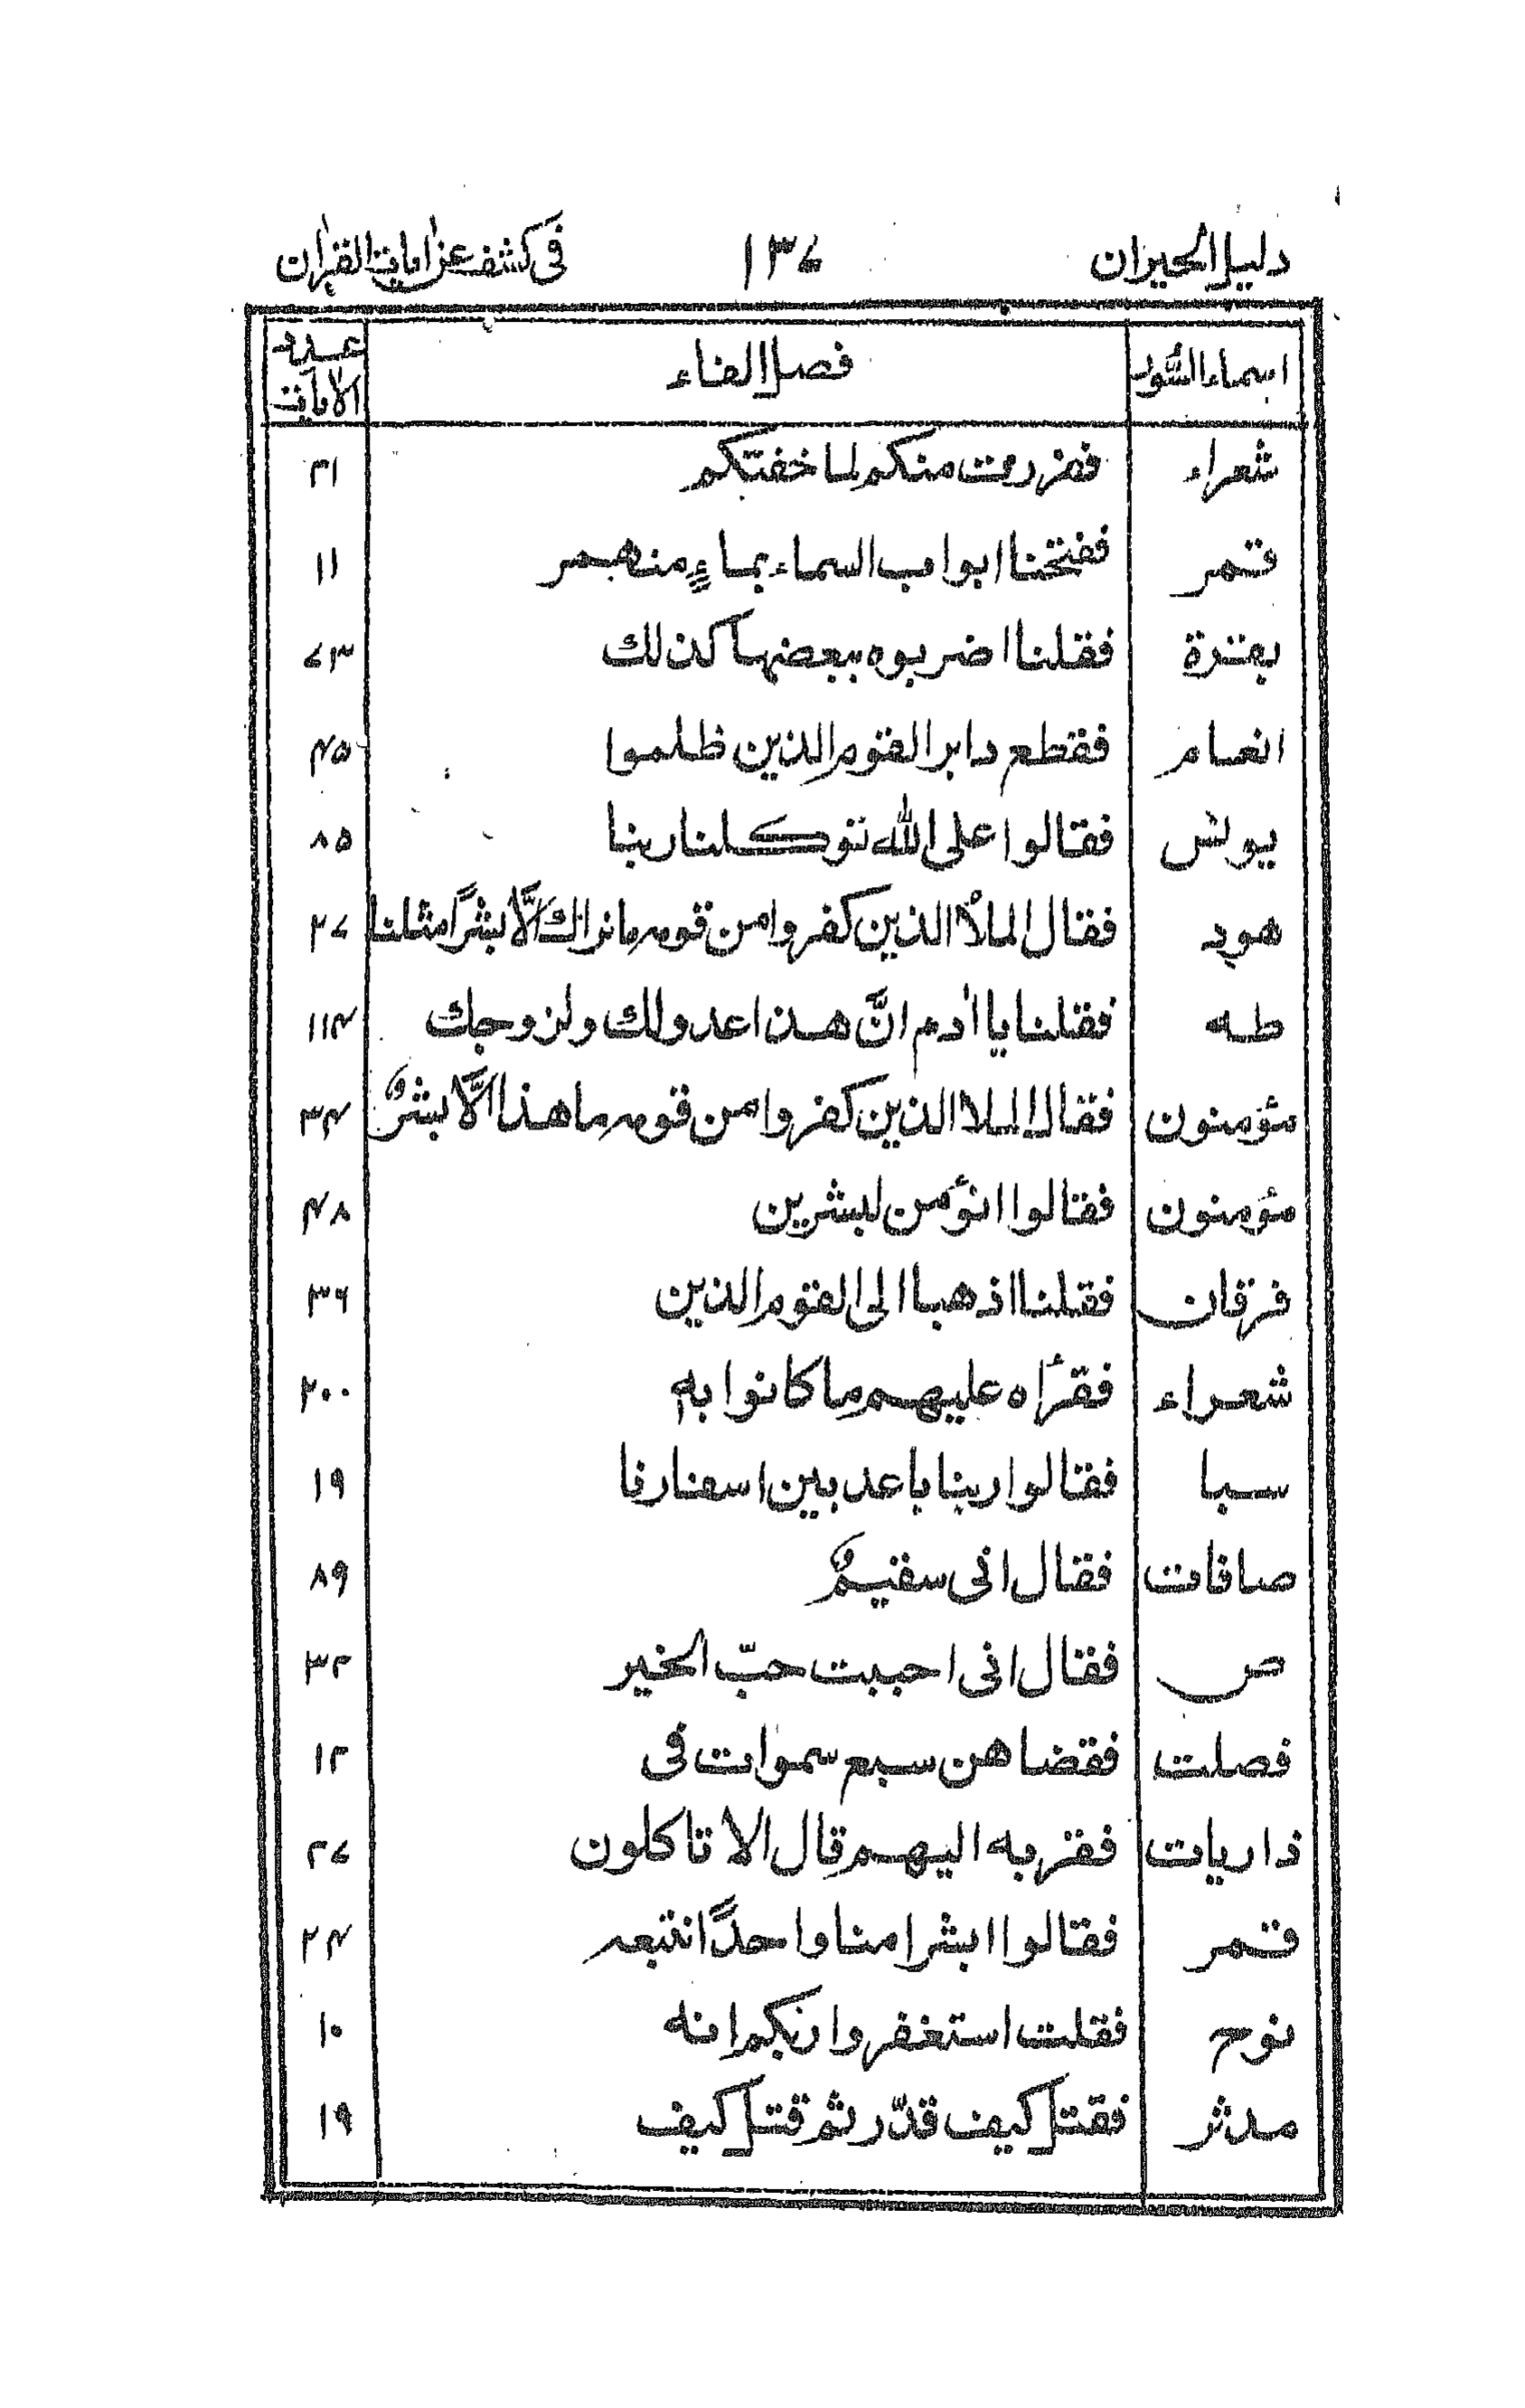 دليل الحيران ١٣٧ في كشف عن اٰيات القراٰن
اسماء السُّور فصل الفاء عدد الاٰيات
شعراء ففررت منكم لما خفتكم ٢١
قمر ففتحنا ابواب السماء بماءٍ منهمر ١١
بقرة فقلنا اضربوه ببعضها كذلك ٧٣
انعام فقطع دابر القوم الذين ظلموا ٤٥
يونس فقالوا على الله توكلنا ربنا ٨٥
هود فقال الملأ الذين كفروا من قومه ما نراك الَّا بشرًا مثلنا ٢٧
طه فقلنا يا اٰدم انَّ هذا عدو لك ولزوجك ١١٤
مؤمنون فقال الملا الذين كفروا من قومه ما هذا الَّا بشرٌ ٣٤
مؤمنون فقالوا انؤمن لبشرين ٤٨
فرقان فقلنا اذهبا الى القوم الذين ٣٦
شعراء فقرأه عليهم ما كانوا به ٢٠٠
سبا فقالوا ربنا باعد بين اسفارنا ١٩
صافات فقال انى سقيمٌ ٨٩
ص فقال انى احببت حبّ الخير ٣٢
فصلت فقضاهن سبع سموات فى ١٢
ذاريات فقربه اليهم قال الا تاكلون ٢٧
قمر فقالوا ابشرا منا واحدًا نتبعه ٢٤
نوح فقلت استغفروا ربكم انه ١٠
مدثر فقتل كيف قدّر ثم قتل كيف ١٩